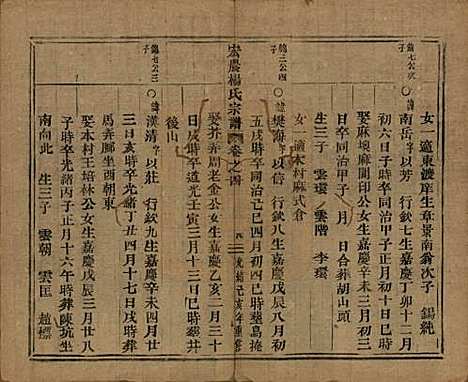 女一適東鍍庠生章景南翁次子 錫純
錦七公次子
○諱南岳字以芳 行欽七生嘉慶丁卯十二月
初六日子時卒同治甲子正月初十日巳時
娶麻埂麻開印公女生嘉慶辛未三月初三
日卒同治甲子 月 日合葬胡山頭
生三子 雲環 雲階 李環
女一適本村麻式倉
錦三公四子
○諱樊海字以信 行欽八生嘉慶戊辰八月初
五戌時卒同治己巳四月初四巳時葬塢掩
宏農楊氏宗譜 卷之四
四
光緒己亥年重修
娶芥弄周老金公女生嘉慶乙亥二月三十
日戌時卒道光壬寅三月十一巳時葬井
後山
錦七公三子
○諱漢清字以莊 行欽九生嘉慶辛未四月廿
三日亥時卒光緒丁丑四月十七日戌時葬
馬弄脚坐酉朝東
娶本村王培林公女生嘉慶戊辰三月廿八
子時卒光緒丙子正月十六午時葬陳坑坐
南向北 生三子 雲朝 雲匡 趙標